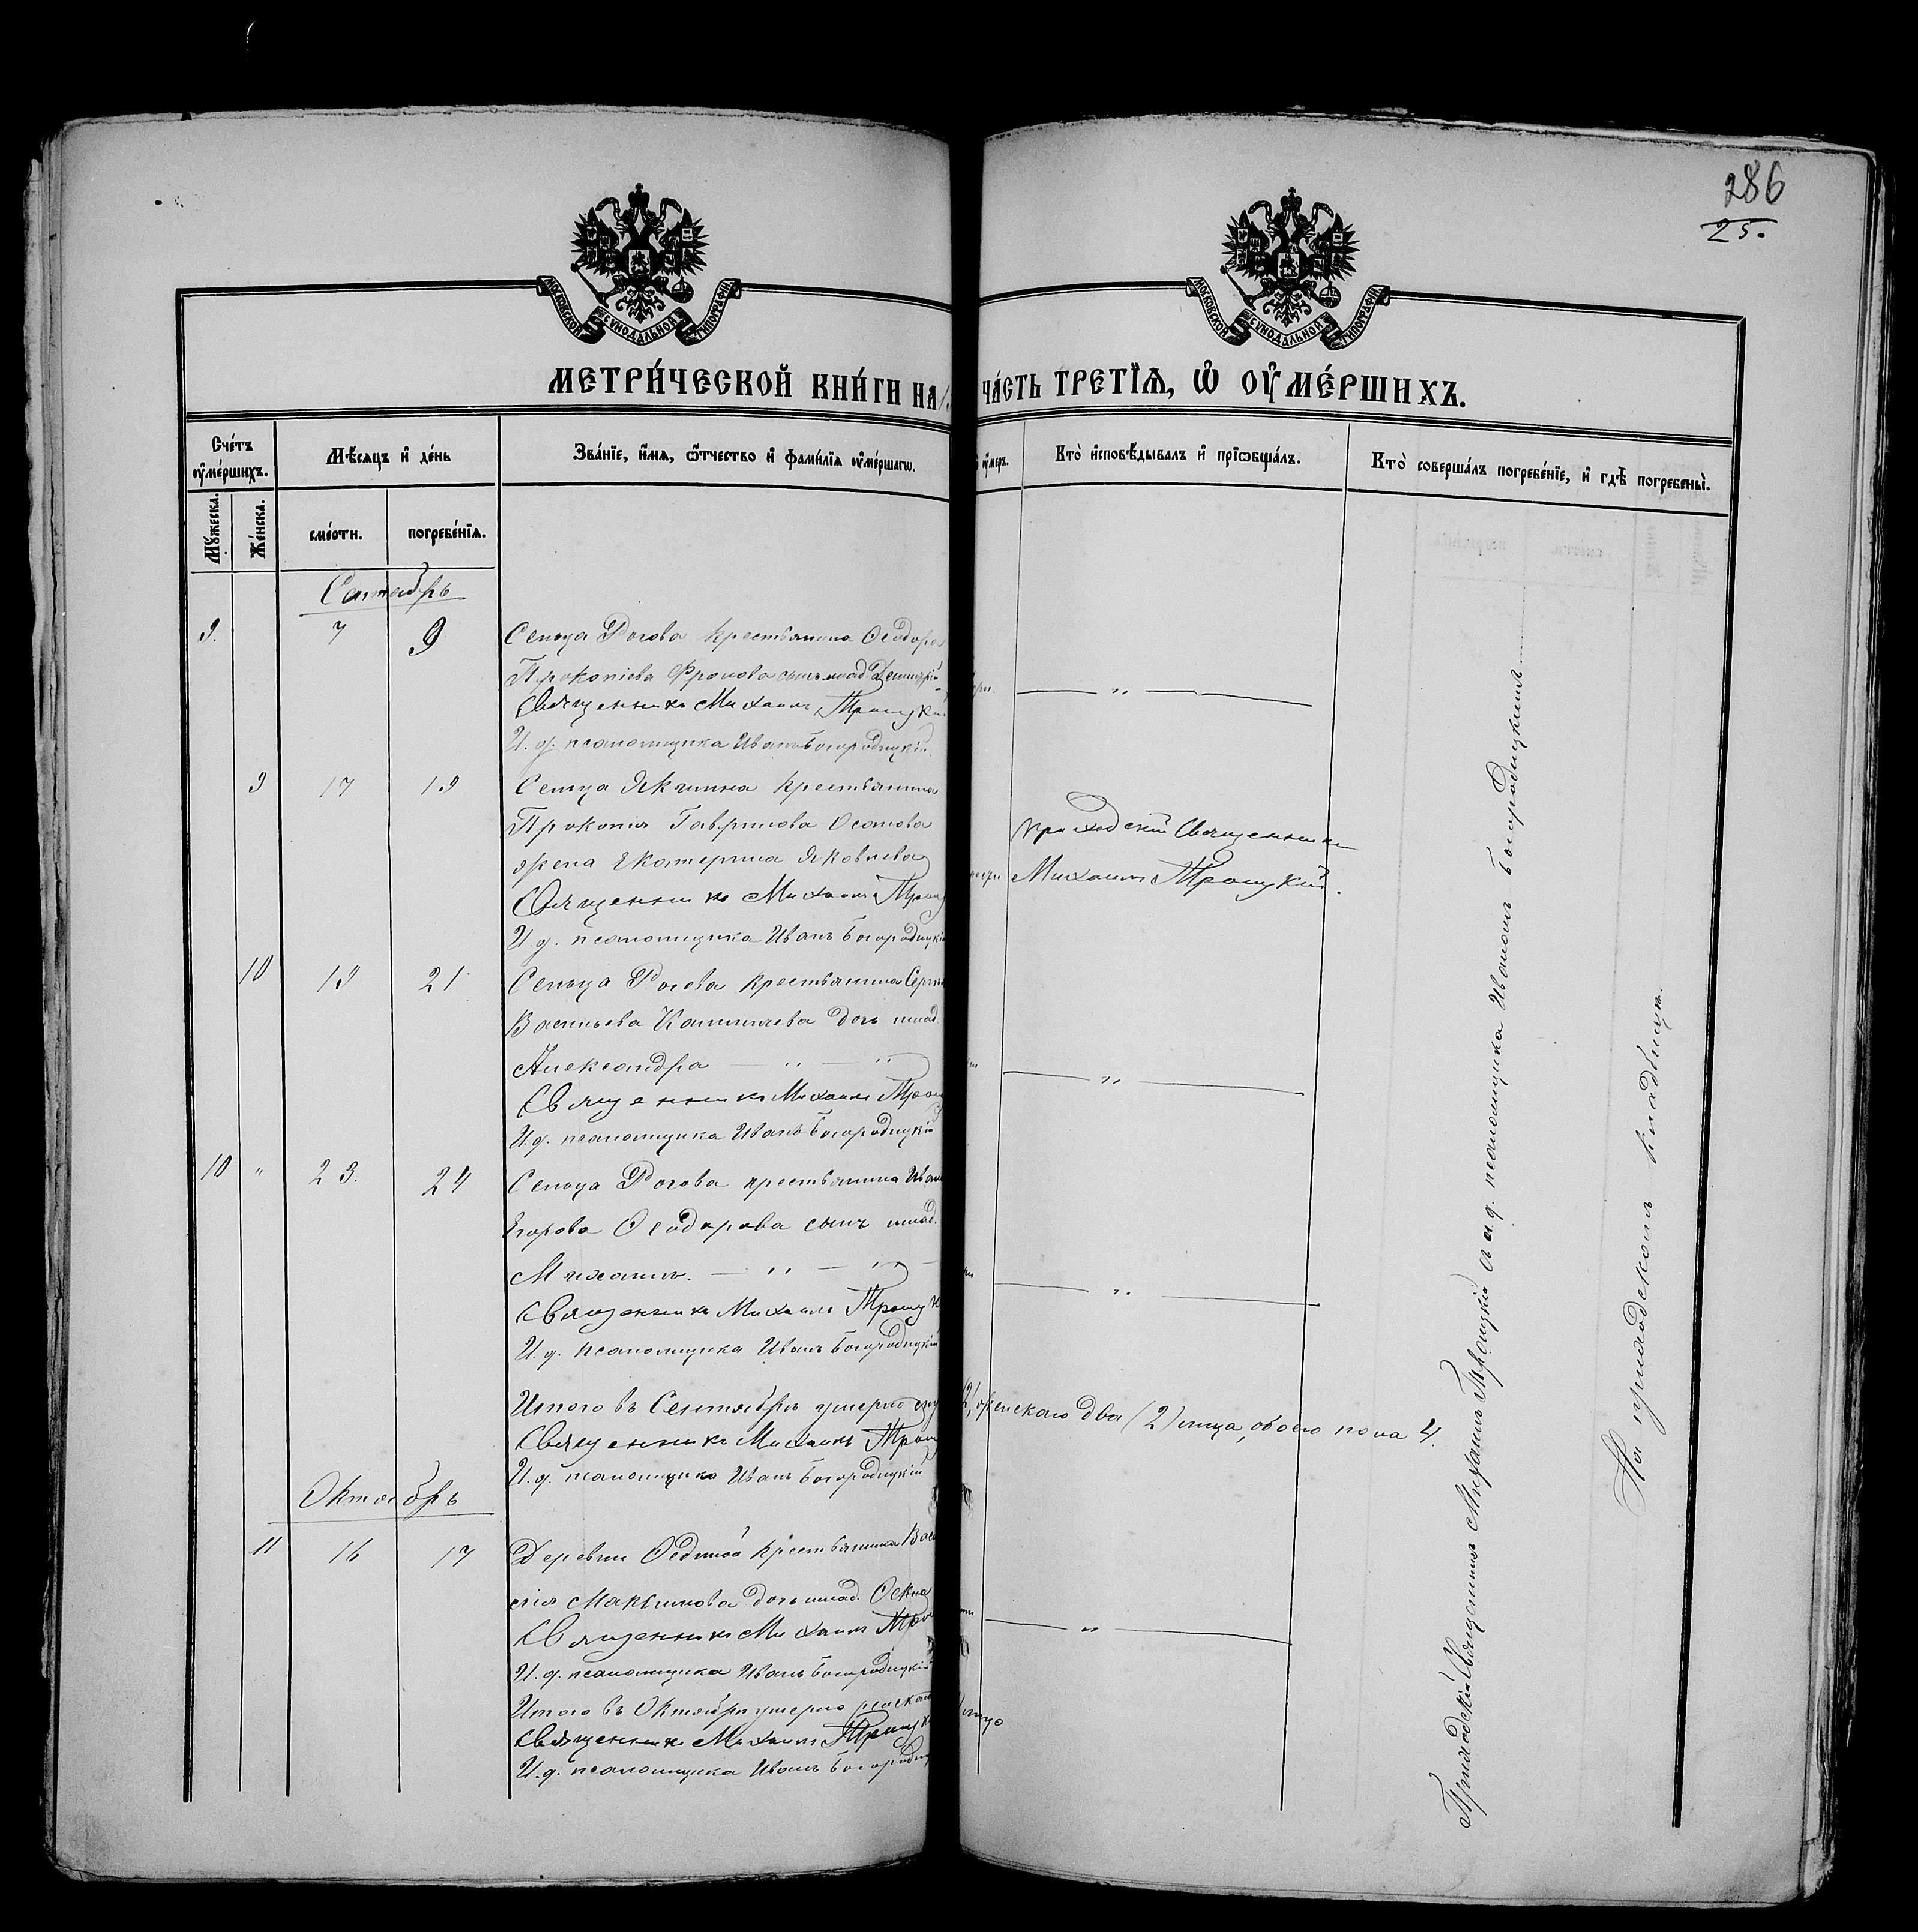 286
25.
МОСКОВСКОЙ СУНОДАЛЬНОЙ ТИПОГРАФІИ
МОСКОВСКОЙ СУНОДАЛЬНОЙ ТИПОГРАФІИ
МЕТРИ́ЧЕСКОЙ КНИ́ГИ НА
ЧА́СТЬ ТРЕТЇѦ, Ѡ҆ ОУ҆МЕ́РШИХЪ.
Сче́тъ ѹ҆ме́ршихъ.
Мѣ́сяцъ и҆ де́нь
Зва́нїе, и҆́мя, ѻ҆́тчество и҆ фами́лїя ѹ҆ме́ршагѡ.
ѹ҆́меръ.
Кто̀ и҆сповѣ́дывалъ и҆ прїѡбща́лъ.
Кто̀ соверша́лъ погребе́нїе, и҆ гдѣ̀ погребены̀.
Мꙋ́жеска.
Же́нска.
сме́рти.
погребе́нїя.
Сентябрь
9. 7 9 Сельца Рогова крестьянина Ѳеодора
Прокопіева Фролова сынъ млад. Димитрій
Священникъ Михаилъ Троицкій
И. д. псаломщика Иванъ Богородицкій.
9 17 19 Сельца Якшина крестьянина
Прокопія Гаврилова Осипова
жена Екатерина Яковлева
Священникъ Михаилъ Троиц
И. д. псаломщика Иванъ Богородицкі
приходскій Священникъ
Михаилъ Троицкій.
10 19 21 Сельца Рогова крестьянина Серг
Васильева дочь млад.
Александра — " — "
Священникъ Михаилъ Трои
И. д. псаломщика Иванъ Богородицкій
10 " 23. 24 Сельца Рогова крестьянина Иван
Егорова Ѳеодорова сынъ млад.
Михаилъ. — " — " —
Священникъ Михаилъ Троицк
И. д. псаломщика Иванъ Богородицкій
Итого въ Сентябрѣ умерло
2, женскаго два (2) лица, обоего пола 4.
Священникъ Михаилъ Троиц
И. д. псаломщика Иванъ Богородицкій
Октябрь
11 16 17 Деревни крестьянина Васи
лія Максимова дочь млад.
Священникъ Михаилъ Трои
И. д. псаломщика Иванъ Богородицкій
Итого въ Октябрѣ умерло женскаго
лицо
Священникъ Михаилъ Троицк
И. д. псаломщика Иванъ Богородиц
Приходскій Священникъ Михаилъ Троицкій съ и. д. псаломщика Иваномъ Богородицкимъ
На приходскомъ кладбищѣ.